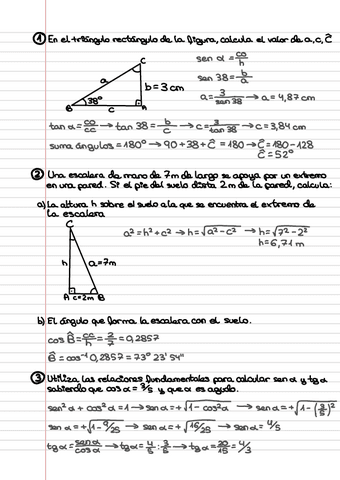 ① En el triángulo rectángulo de la figura, calcula el valor de a, c, Ĉ
sen α = co/h
sen 38 = b/a
a = 3/sen 38 → a = 4,87 cm
C
a
b = 3 cm
38°
B
c
A
tan α = co/cc → tan 38 = b/c → c = 3/tan 38 → c = 3,84 cm
suma ángulos = 180° → 90 + 38 + Ĉ = 180 → Ĉ = 180 - 128
Ĉ = 52°
② Una escalera de mano de 7m de largo se apoya por un extremo
en una pared. Si el pie del suelo dista 2m de la pared, calcula:
a) La altura h sobre el suelo a la que se encuentra el extremo de
la escalera
C
h
a = 7m
A c=2m B
a² = h² + c² → h = √a² - c² → h = √7² - 2²
h = 6,71 m
b) El ángulo que forma la escalera con el suelo.
cos B̂ = ca/h = 2/7 = 0,2857
B̂ = cos⁻¹ 0,2857 = 73° 23' 54"
③ Utiliza las relaciones fundamentales para calcular sen α y tg α
sabiendo que cos α = 3/5 y que α es agudo.
sen² α + cos² α = 1 → sen α = +√1 - cos² α → sen α = +√1 - (3/5)²
sen α = +√1 - 9/25 → sen α = +√16/25 → sen α = 4/5
tg α = sen α/cos α → tg α = 4/5 : 3/5 → tg α = 20/15 = 4/3